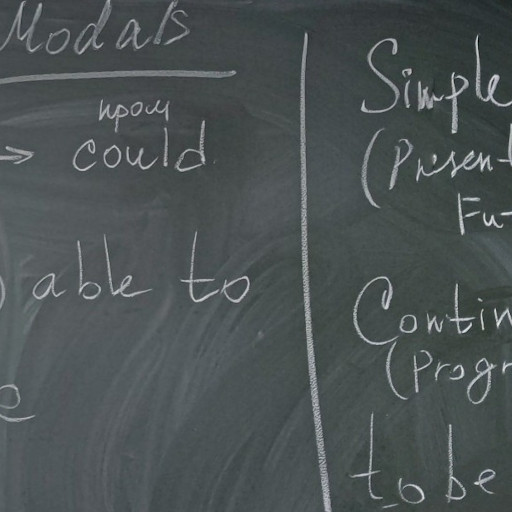 Modals
прош
→ could
) able to
e
Simple
(Present
Fut
Contin
(Progr
to be